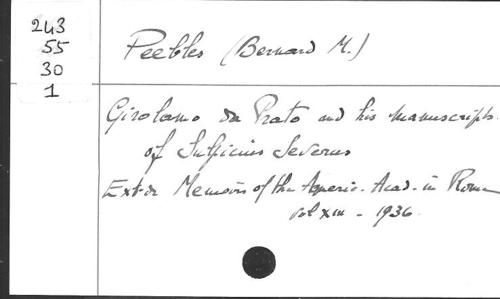 243
55
30
1
Peebles (Bernard M.)
Girolamo da Prato and his manuscripts
of Sulpicius Severus
Extr Memoirs of the Americ. Acad. in Rome
vol XIII - 1936.